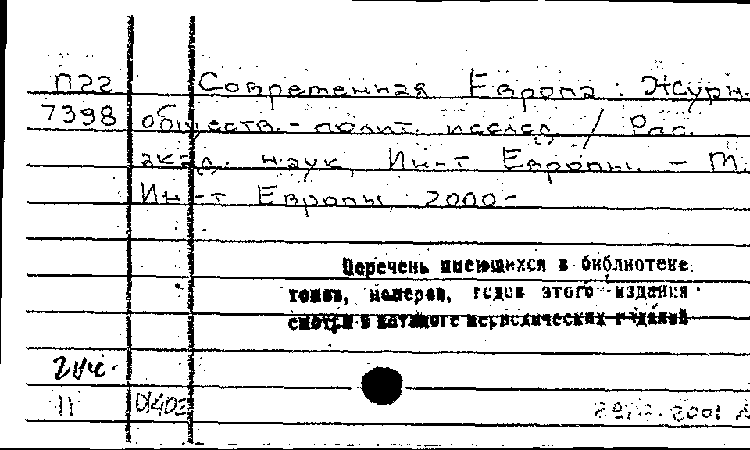 П22 Современная Европа: Журн.
7398 обществ.-полит. исслед. / Рос.
акад. наук, Ин-т Европы. - М.
Ин-т Европы, 2000-
Перечень имеющихся в библиотеке
томов, номеров, годов этого издания
смотри в каталоге периодических изданий
2уч.
11
2001